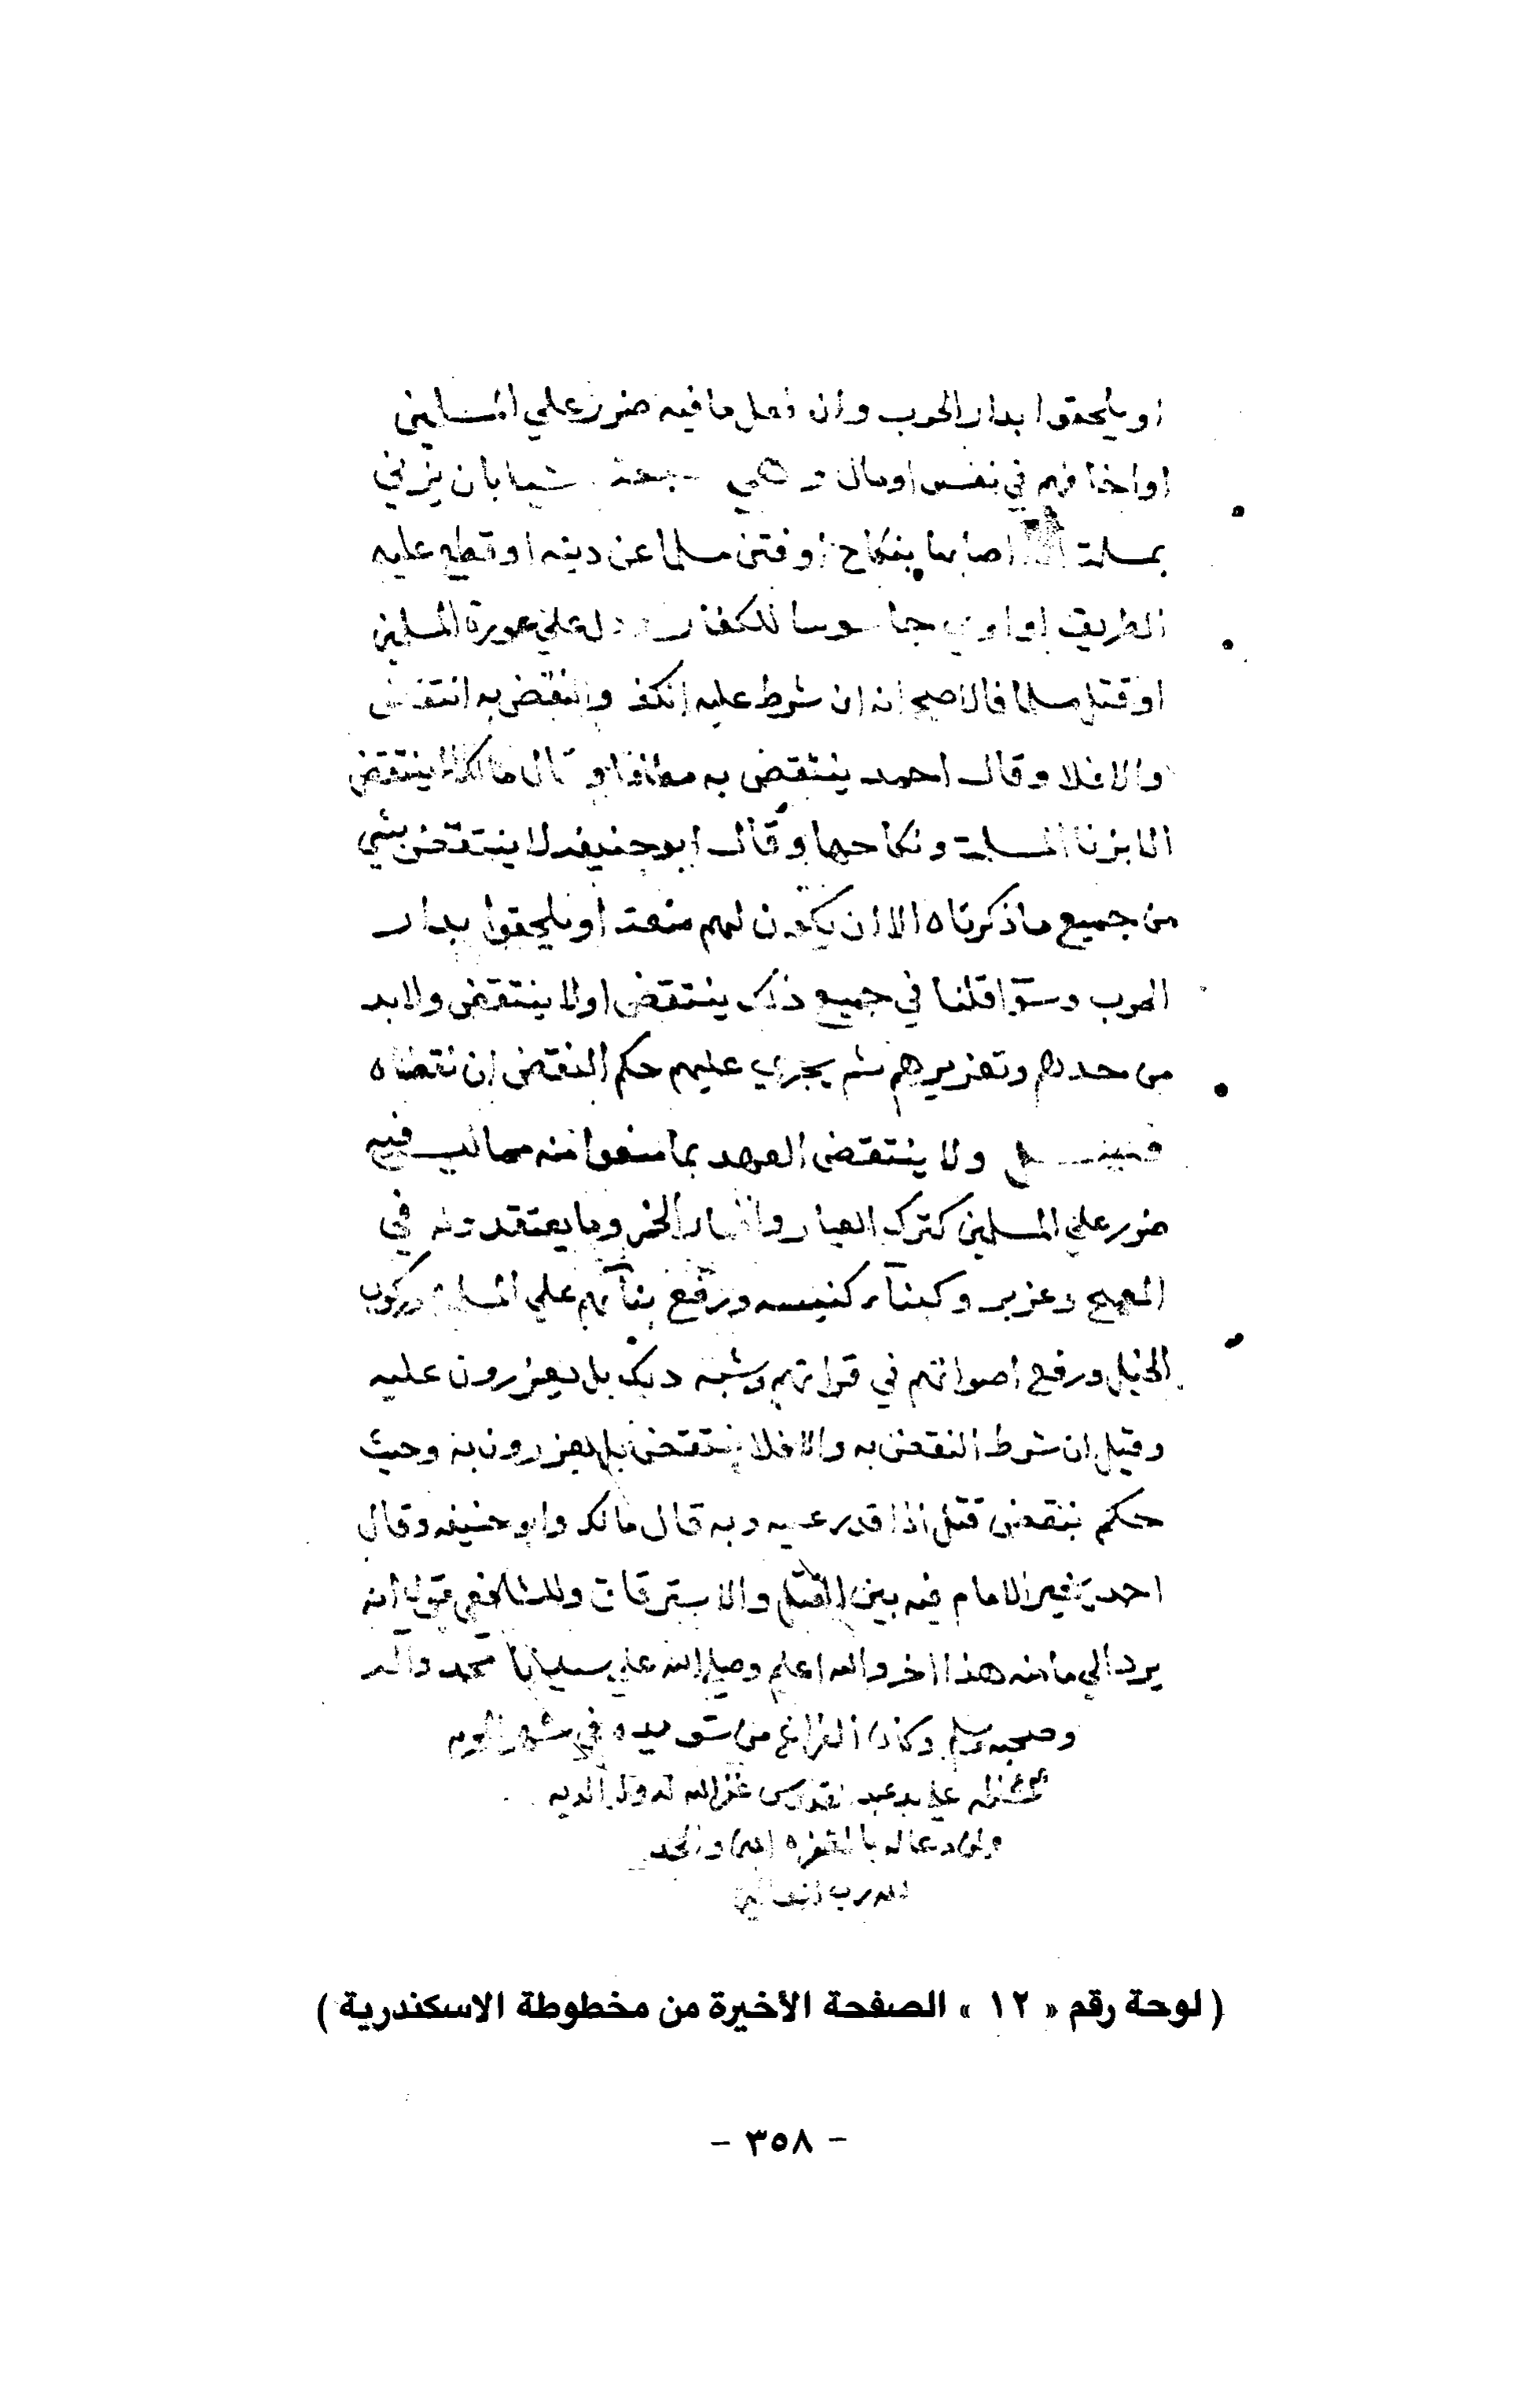 او يلحقوا بدار الحرب وان فعل ما فيه ضرر علي المسلمين
او اخافهم في نفس او مال وهي سبعة اشيا بان يزني
بمسلمة او اصابها بنكاح او فتن مسلما عن دينه او قطع عليه
الطريق او اوي جاسوسا للكفار او دل علي عورة المسلمين
او قتل مسلما فالاصح انه ان شرط عليه الكف والنقض به انتقض
والا فلا وقال احمد ينتقض به مطلقا وقال مالك لا ينتقض
الا بزنا المسلمة ونكاحها وقال ابو حنيفه لا ينتقض بشي
من جميع ما ذكرناه الا ان يكون لهم منعة او يلحقوا بدار
الحرب وسوا قلنا في جميع ذلك ينتقض او لا ينتقض ولا بد
من حدهم وتعزيرهم ثم يجري عليهم حكم النقض ان نقضناه
فصل ولا ينتقض العهد بما منعوا منه مما ليس فيه
ضرر علي المسلمين كترك الغيار واظهار الخمر وما يعتقدونه في
المسيح وعزير وكبناء كنيسه ورفع بنائهم علي المسلمين وركوب
الخيل ورفع اصواتهم في قراتهم وشبه ذلك بل يعزرون عليه
وقيل ان شرط النقض به والا فلا ينتقض بل يعزرون به وحيث
حكم بنقض قتل اذا قدر عليه وبه قال مالك وابو حنيفه وقال
احمد يخير الامام فيه بين القتل والاسترقاق وللشافعي قول انه
يرد الي مامنه هذا اخره والله اعلم وصلي الله علي سيدنا محمد واله
وصحبه وسلم وكان الفراغ من تسويده في شهر
علي يد عبد القدوس غفر الله له ولوالديه
ولمن دعا له بالمغفره امين والحمد
لله رب العالمين
( لوحة رقم « ١٢ » الصفحة الأخيرة من مخطوطة الاسكندرية )
- ٣٥٨ -